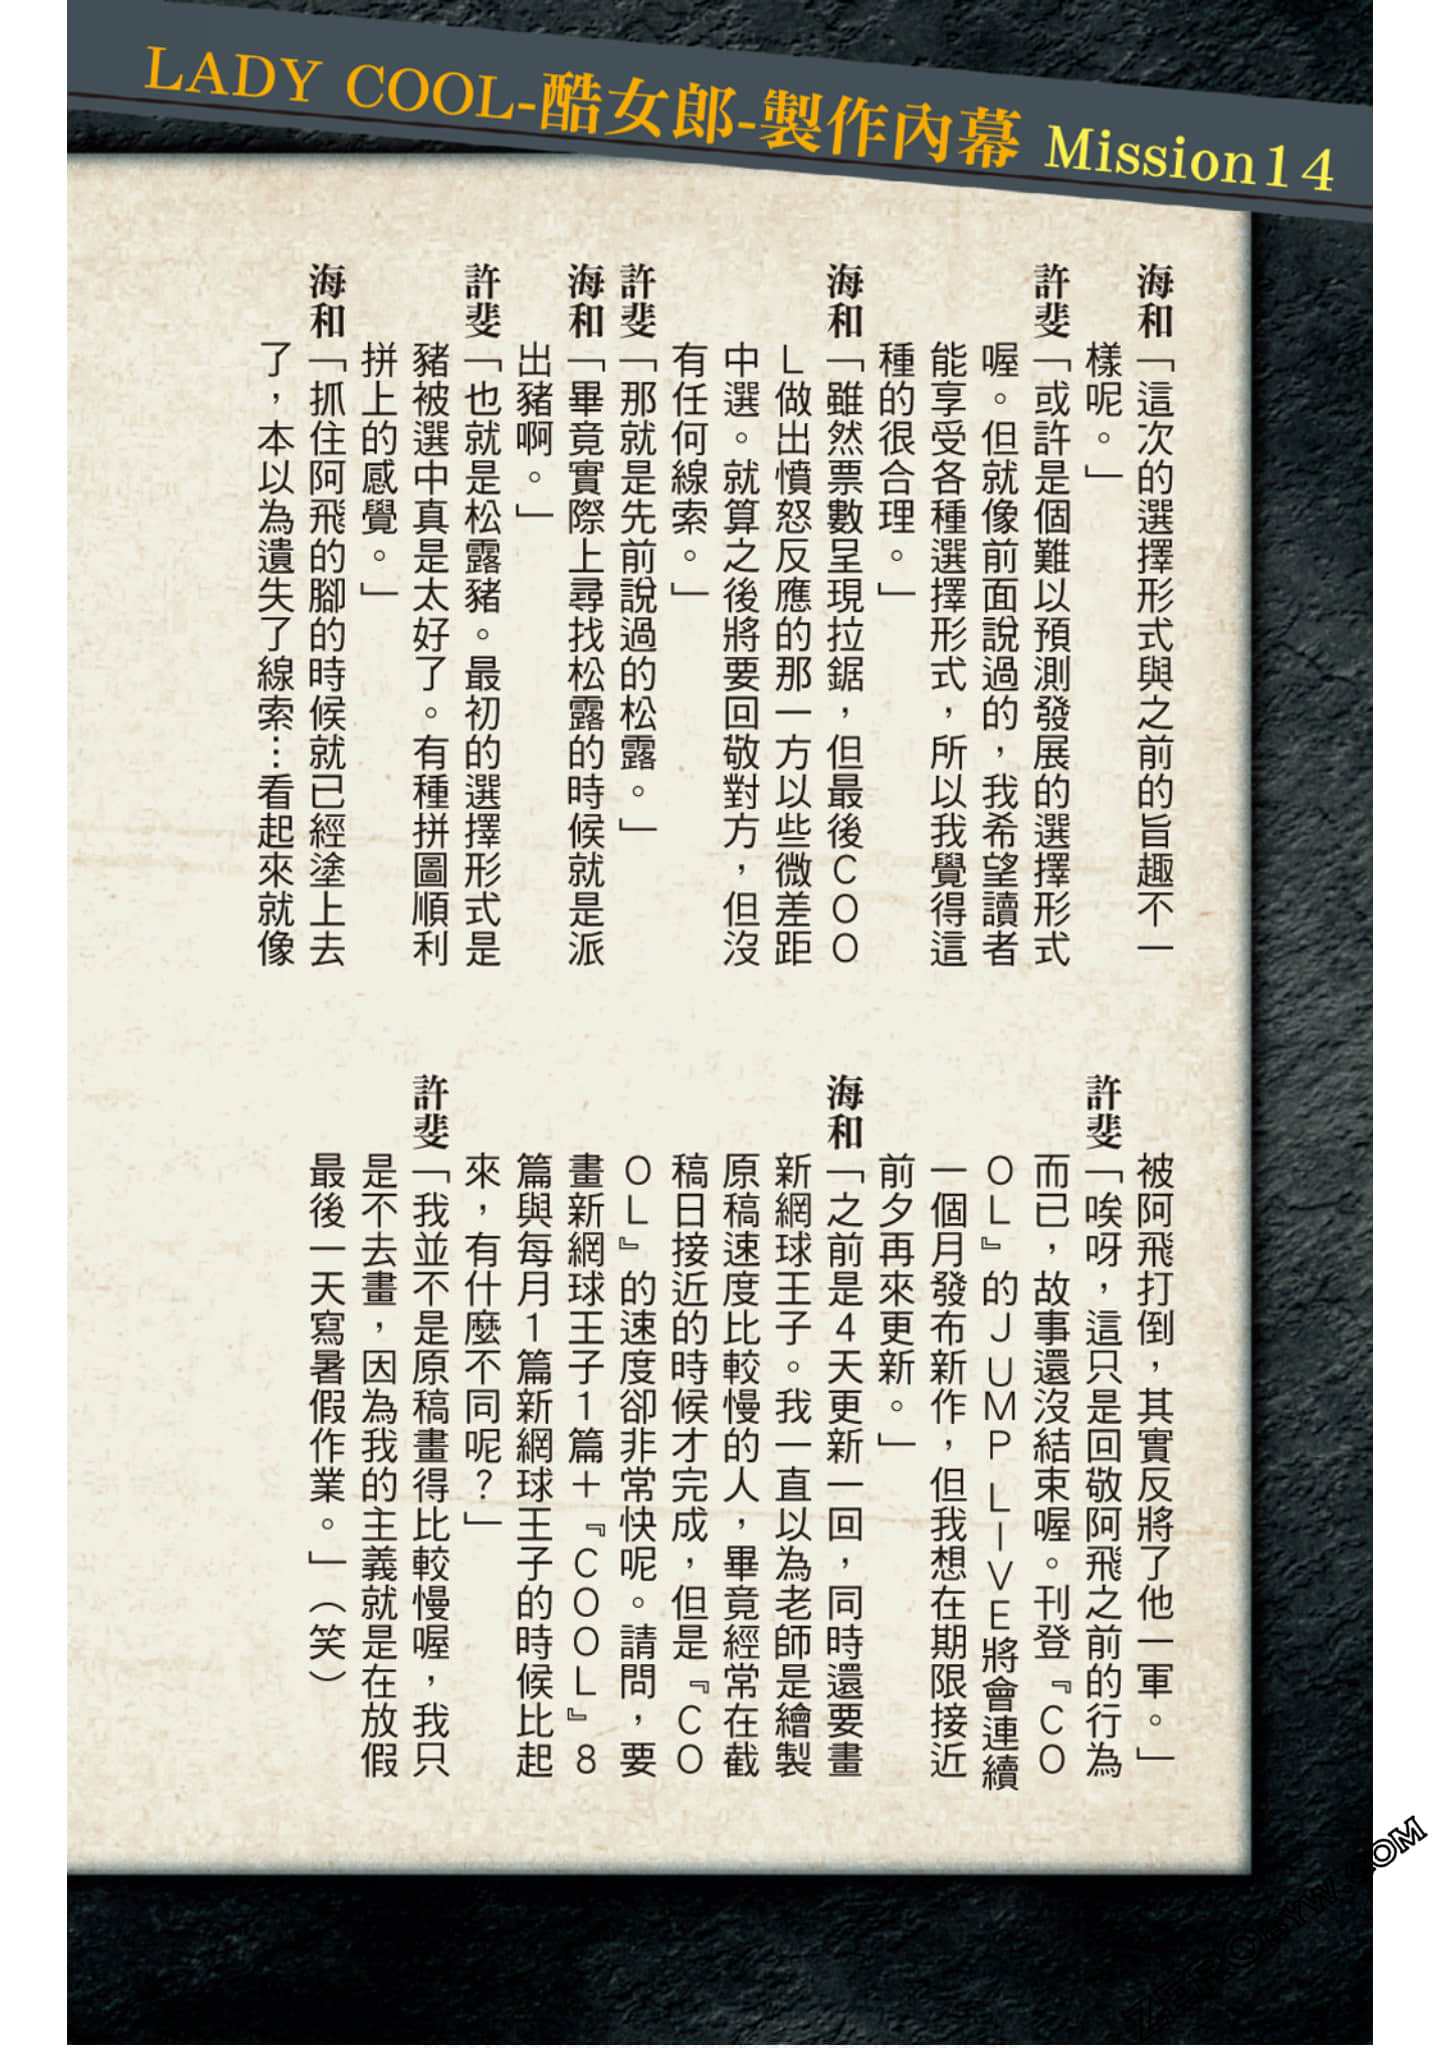 LADY COOL-酷女郎-製作內幕 Mission14
海和「這次的選擇形式與之前的旨趣不一
樣呢。」
許斐「或許是個難以預測發展的選擇形式
喔。但就像前面說過的，我希望讀者
能享受各種選擇形式，所以我覺得這
種的很合理。」
海和「雖然票數呈現拉鋸，但最後ＣＯＯ
Ｌ做出憤怒反應的那一方以些微差距
中選。就算之後將要回敬對方，但沒
有任何線索。」
許斐「那就是先前說過的松露。」
海和「畢竟實際上尋找松露的時候就是派
出豬啊。」
許斐「也就是松露豬。最初的選擇形式是
豬被選中真是太好了。有種拼圖順利
拼上的感覺。」
海和「抓住阿飛的腳的時候就已經塗上去
了，本以為遺失了線索…看起來就像
被阿飛打倒，其實反將了他一軍。」
許斐「唉呀，這只是回敬阿飛之前的行為
而已，故事還沒結束喔。刊登『ＣＯ
ＯＬ』的ＪＵＭＰ ＬＩＶＥ將會連續
一個月發布新作，但我想在期限接近
前夕再來更新。」
海和「之前是４天更新一回，同時還要畫
新網球王子。我一直以為老師是繪製
原稿速度比較慢的人，畢竟經常在截
稿日接近的時候才完成，但是『ＣＯ
ＯＬ』的速度卻非常快呢。請問，要
畫新網球王子１篇＋『ＣＯＯＬ』８
篇與每月１篇新網球王子的時候比起
來，有什麼不同呢？」
許斐「我並不是原稿畫得比較慢喔，我只
是不去畫，因為我的主義就是在放假
最後一天寫暑假作業。」（笑）